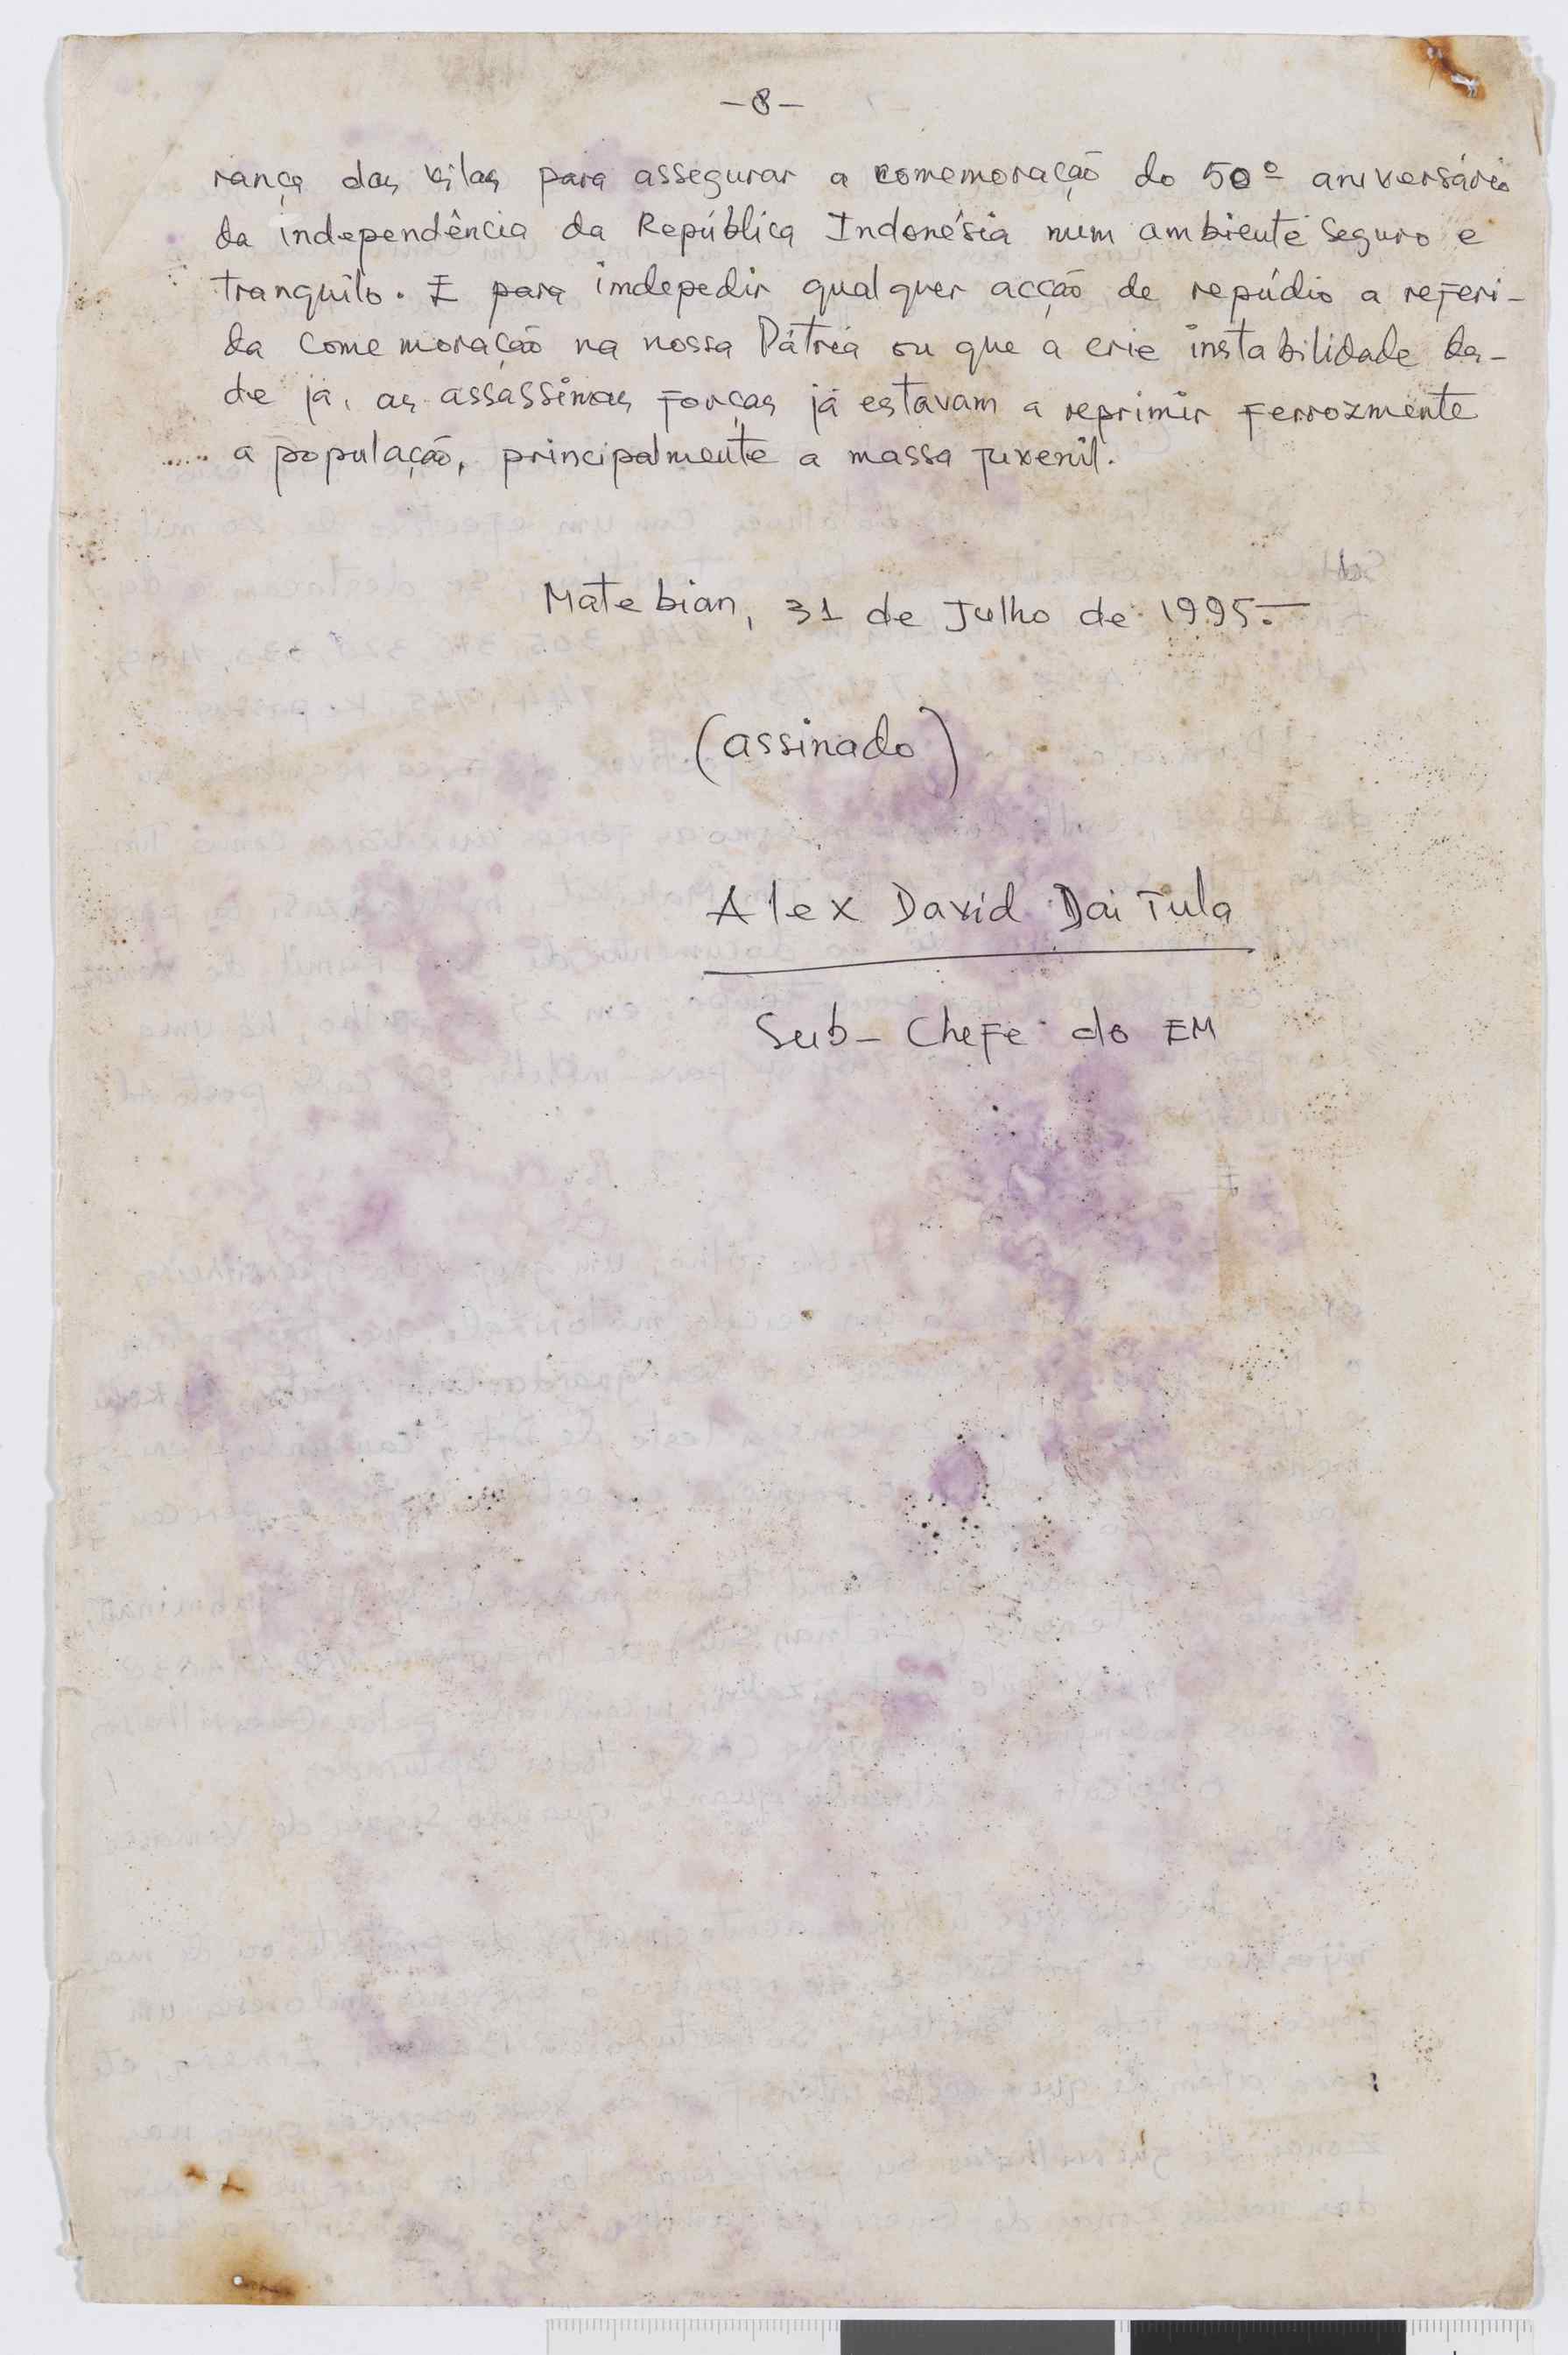 -8-
rança das vilas para assegurar a comemoração do 50º aniversário
da independência da República Indonésia num ambiente seguro e
tranquilo. E para indepedir qualquer acção de repúdio a referi-
da comemoração na nossa Pátria ou que a crie instabilidade da-
de já, as assassinas forças já estavam a reprimir ferrozmente
a população, principalmente a massa juvenil.
Matebian, 31 de Julho de 1995.—
(assinado)
Alex David Daitula
Sub-Chefe do EM